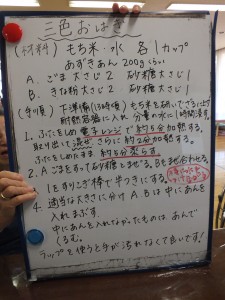 三色おはぎ
(材料) もち米・水 各1カップ
あずきあん 200gくらい
A. ごま大さじ2 砂糖大さじ1
B. きな粉大さじ2 砂糖大さじ1
(手順) 下準備 もち米を研いでざるに上げ
耐熱容器に入れ 分量の水に1時間浸す
1. ふたをしめ 電子レンジで約5分加熱する。
取り出して混ぜ さらに約2分加熱する。
ふたをしたまま 約5分蒸らす。
2. Aごまをすって砂糖とまぜる。Bも混ぜ合わせる。
3. 1をすりこぎ棒で半つきにする。
4. 適当な大きさに分け A Bは中にあんを
入れまぶす。
中にあんを入れなかったものは、あんで
くるむ。
ラップを使うと手が汚れなくて良いです!